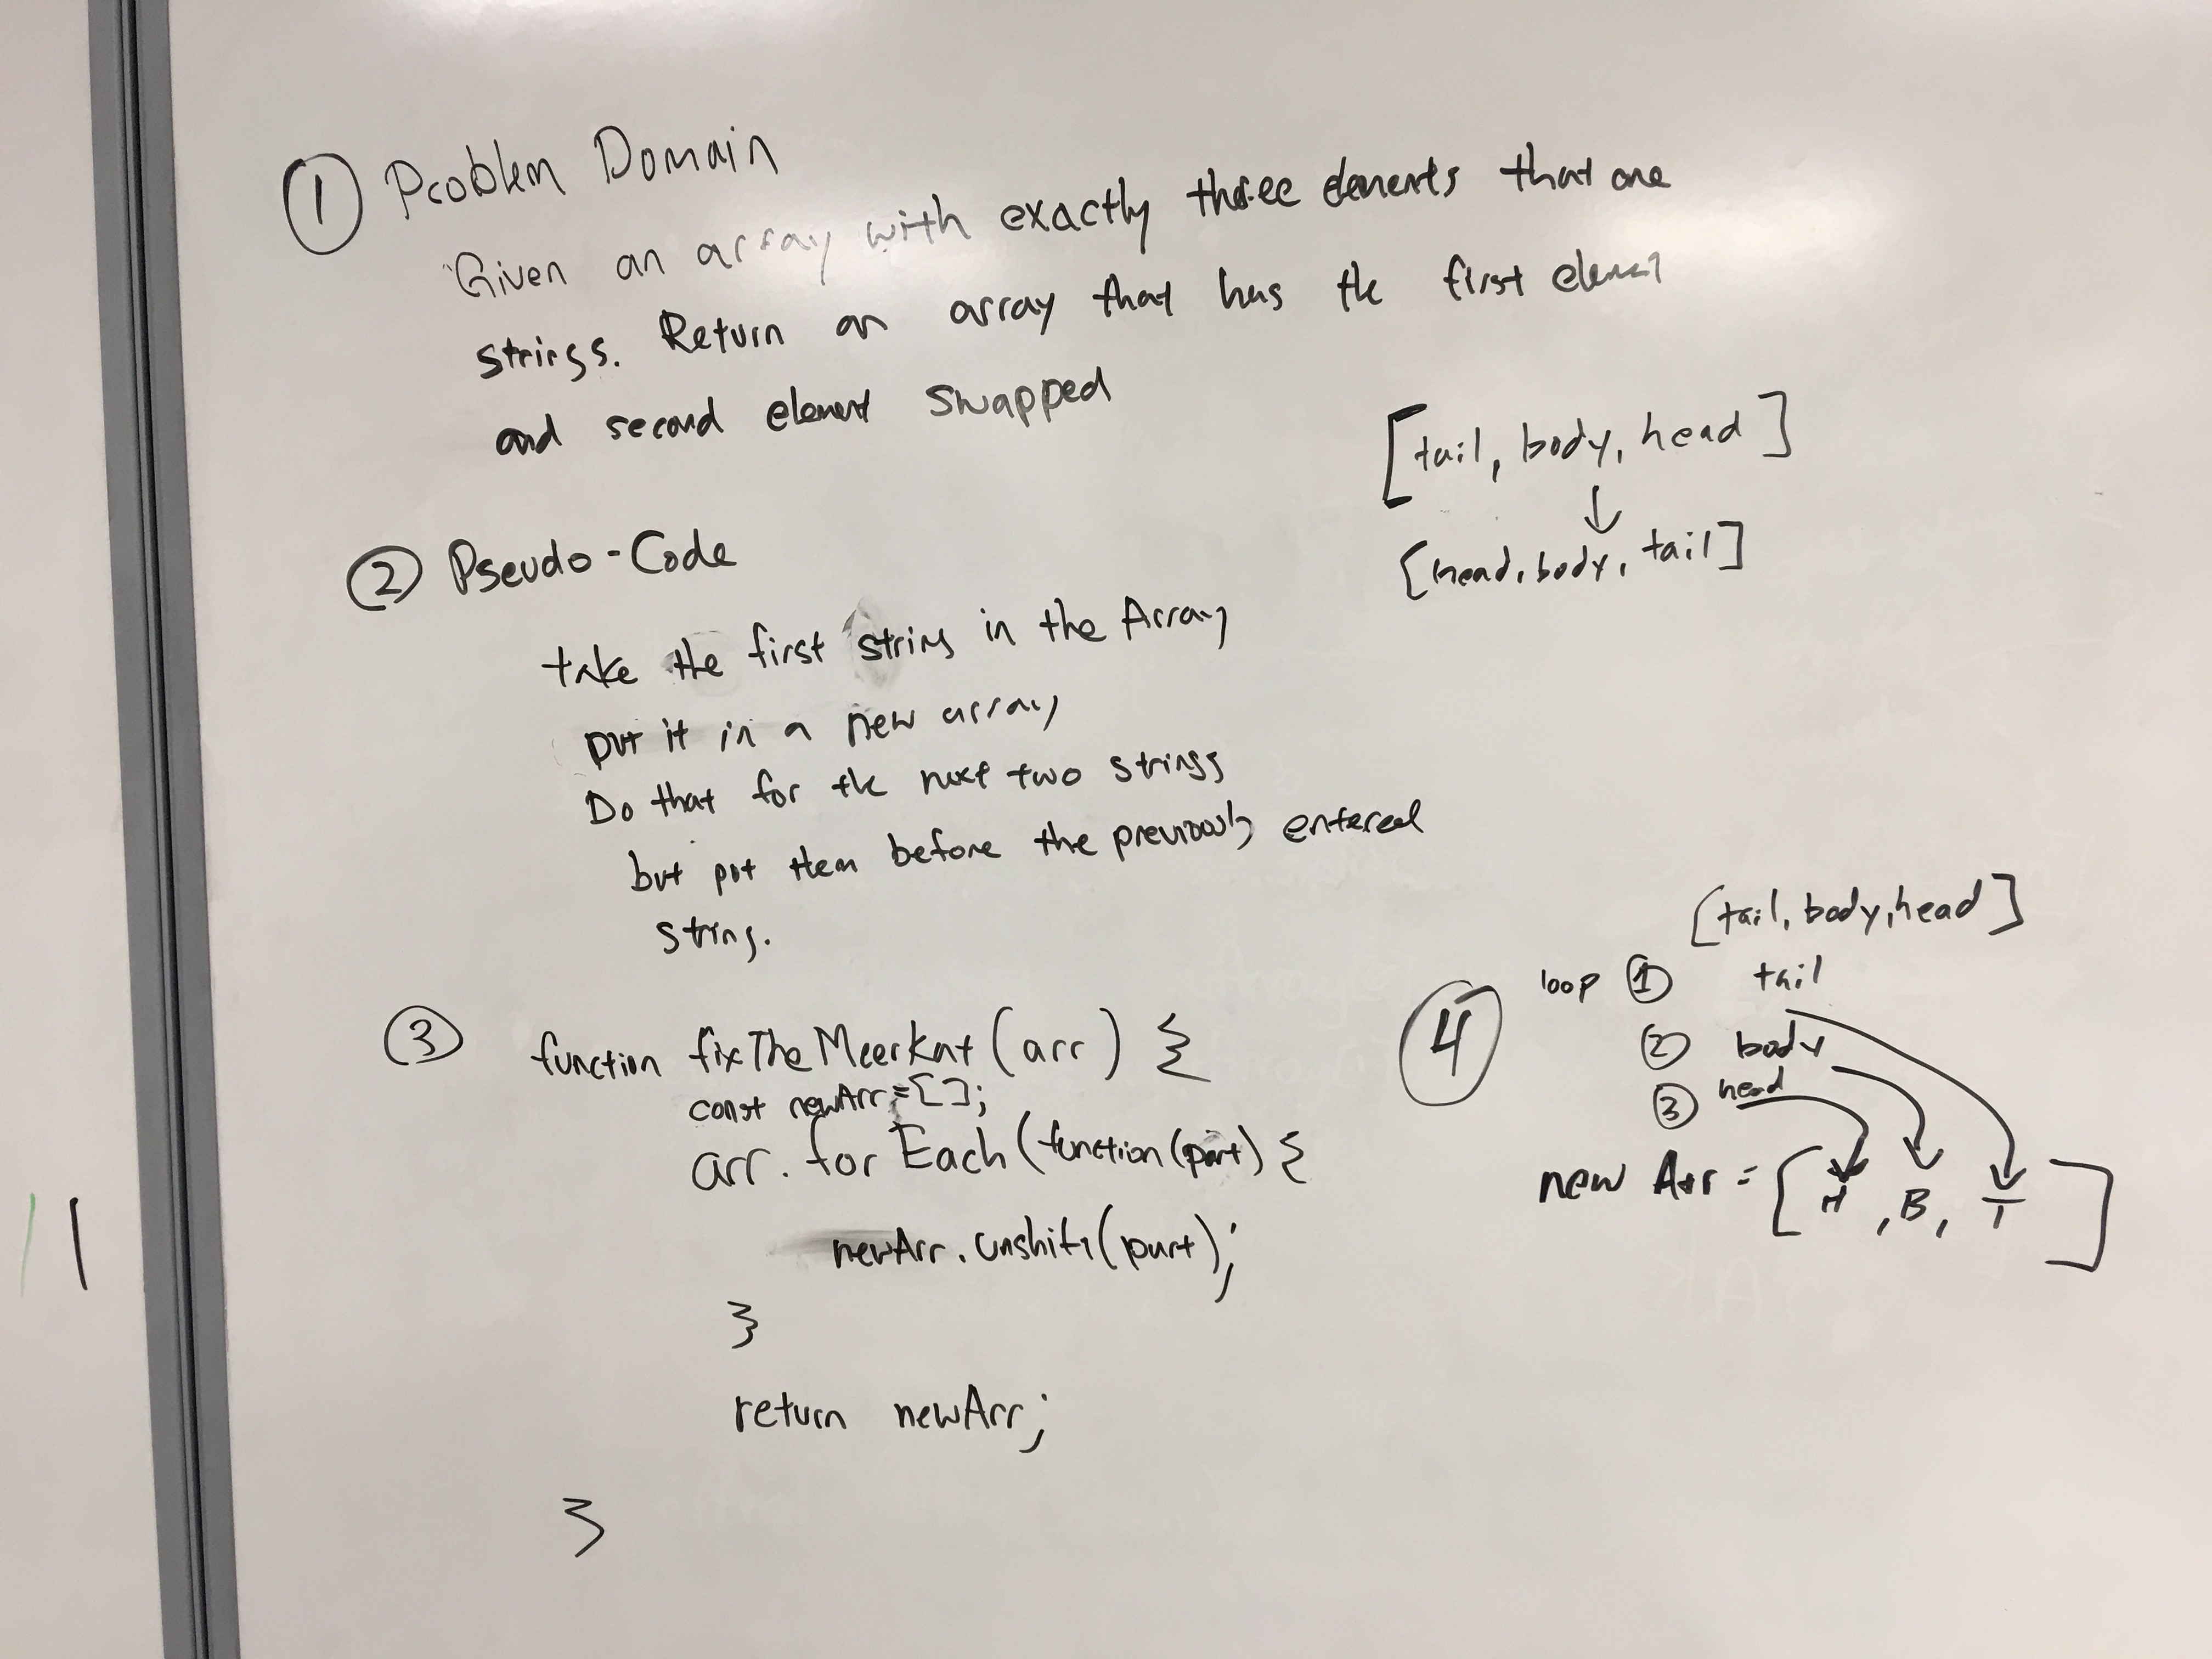 ① Problem Domain
Given an array with exactly three elements that are
strings. Return an array that has the first element
and second element swapped
[tail, body, head]
↓
[head, body, tail]
② Pseudo-Code
take the first string in the Array
put it in a new array
Do that for the next two strings
but put them before the previously entered
string.
③ function fixTheMeerkat(arr) {
const newArr=[];
arr.forEach(function(part) {
newArr.unshift(part);
}
return newArr;
}
④
[tail, body, head]
loop ① tail
② body
③ head
new Arr = [H, B, T]